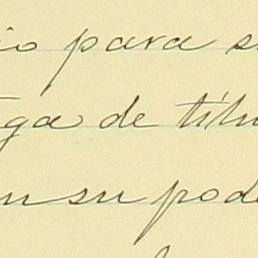 io para s
ga de títu
n su pode